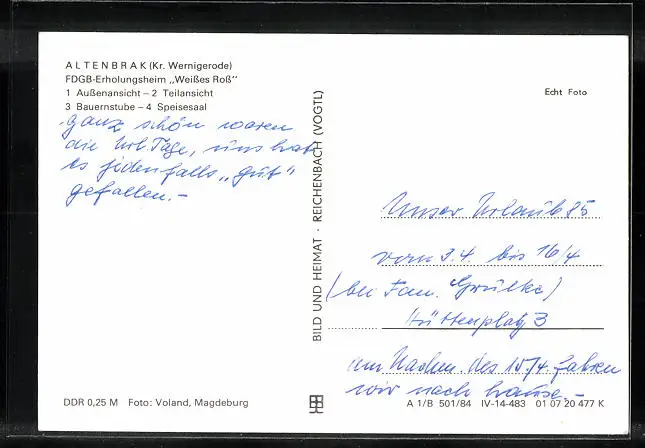 ALTENBRAK (Kr. Wernigerode)
FDGB-Erholungsheim „Weißes Roß"
1 Außenansicht – 2 Teilansicht
3 Bauernstube – 4 Speisesaal
ganz schön waren
die Url. Tage, uns hat
es jedenfalls „gut"
gefallen. –
BILD UND HEIMAT · REICHENBACH (VOGTL)
Echt Foto
Unser Urlaub 85
vom 3.4. bis 16/4
(bei Fam. Grülke)
Hüttenplatz 3
am Nachm. des 15/4. fahren
wir nach hause. –
DDR 0,25 M Foto: Voland, Magdeburg
A 1/B 501/84 IV-14-483 01 07 20 477 K